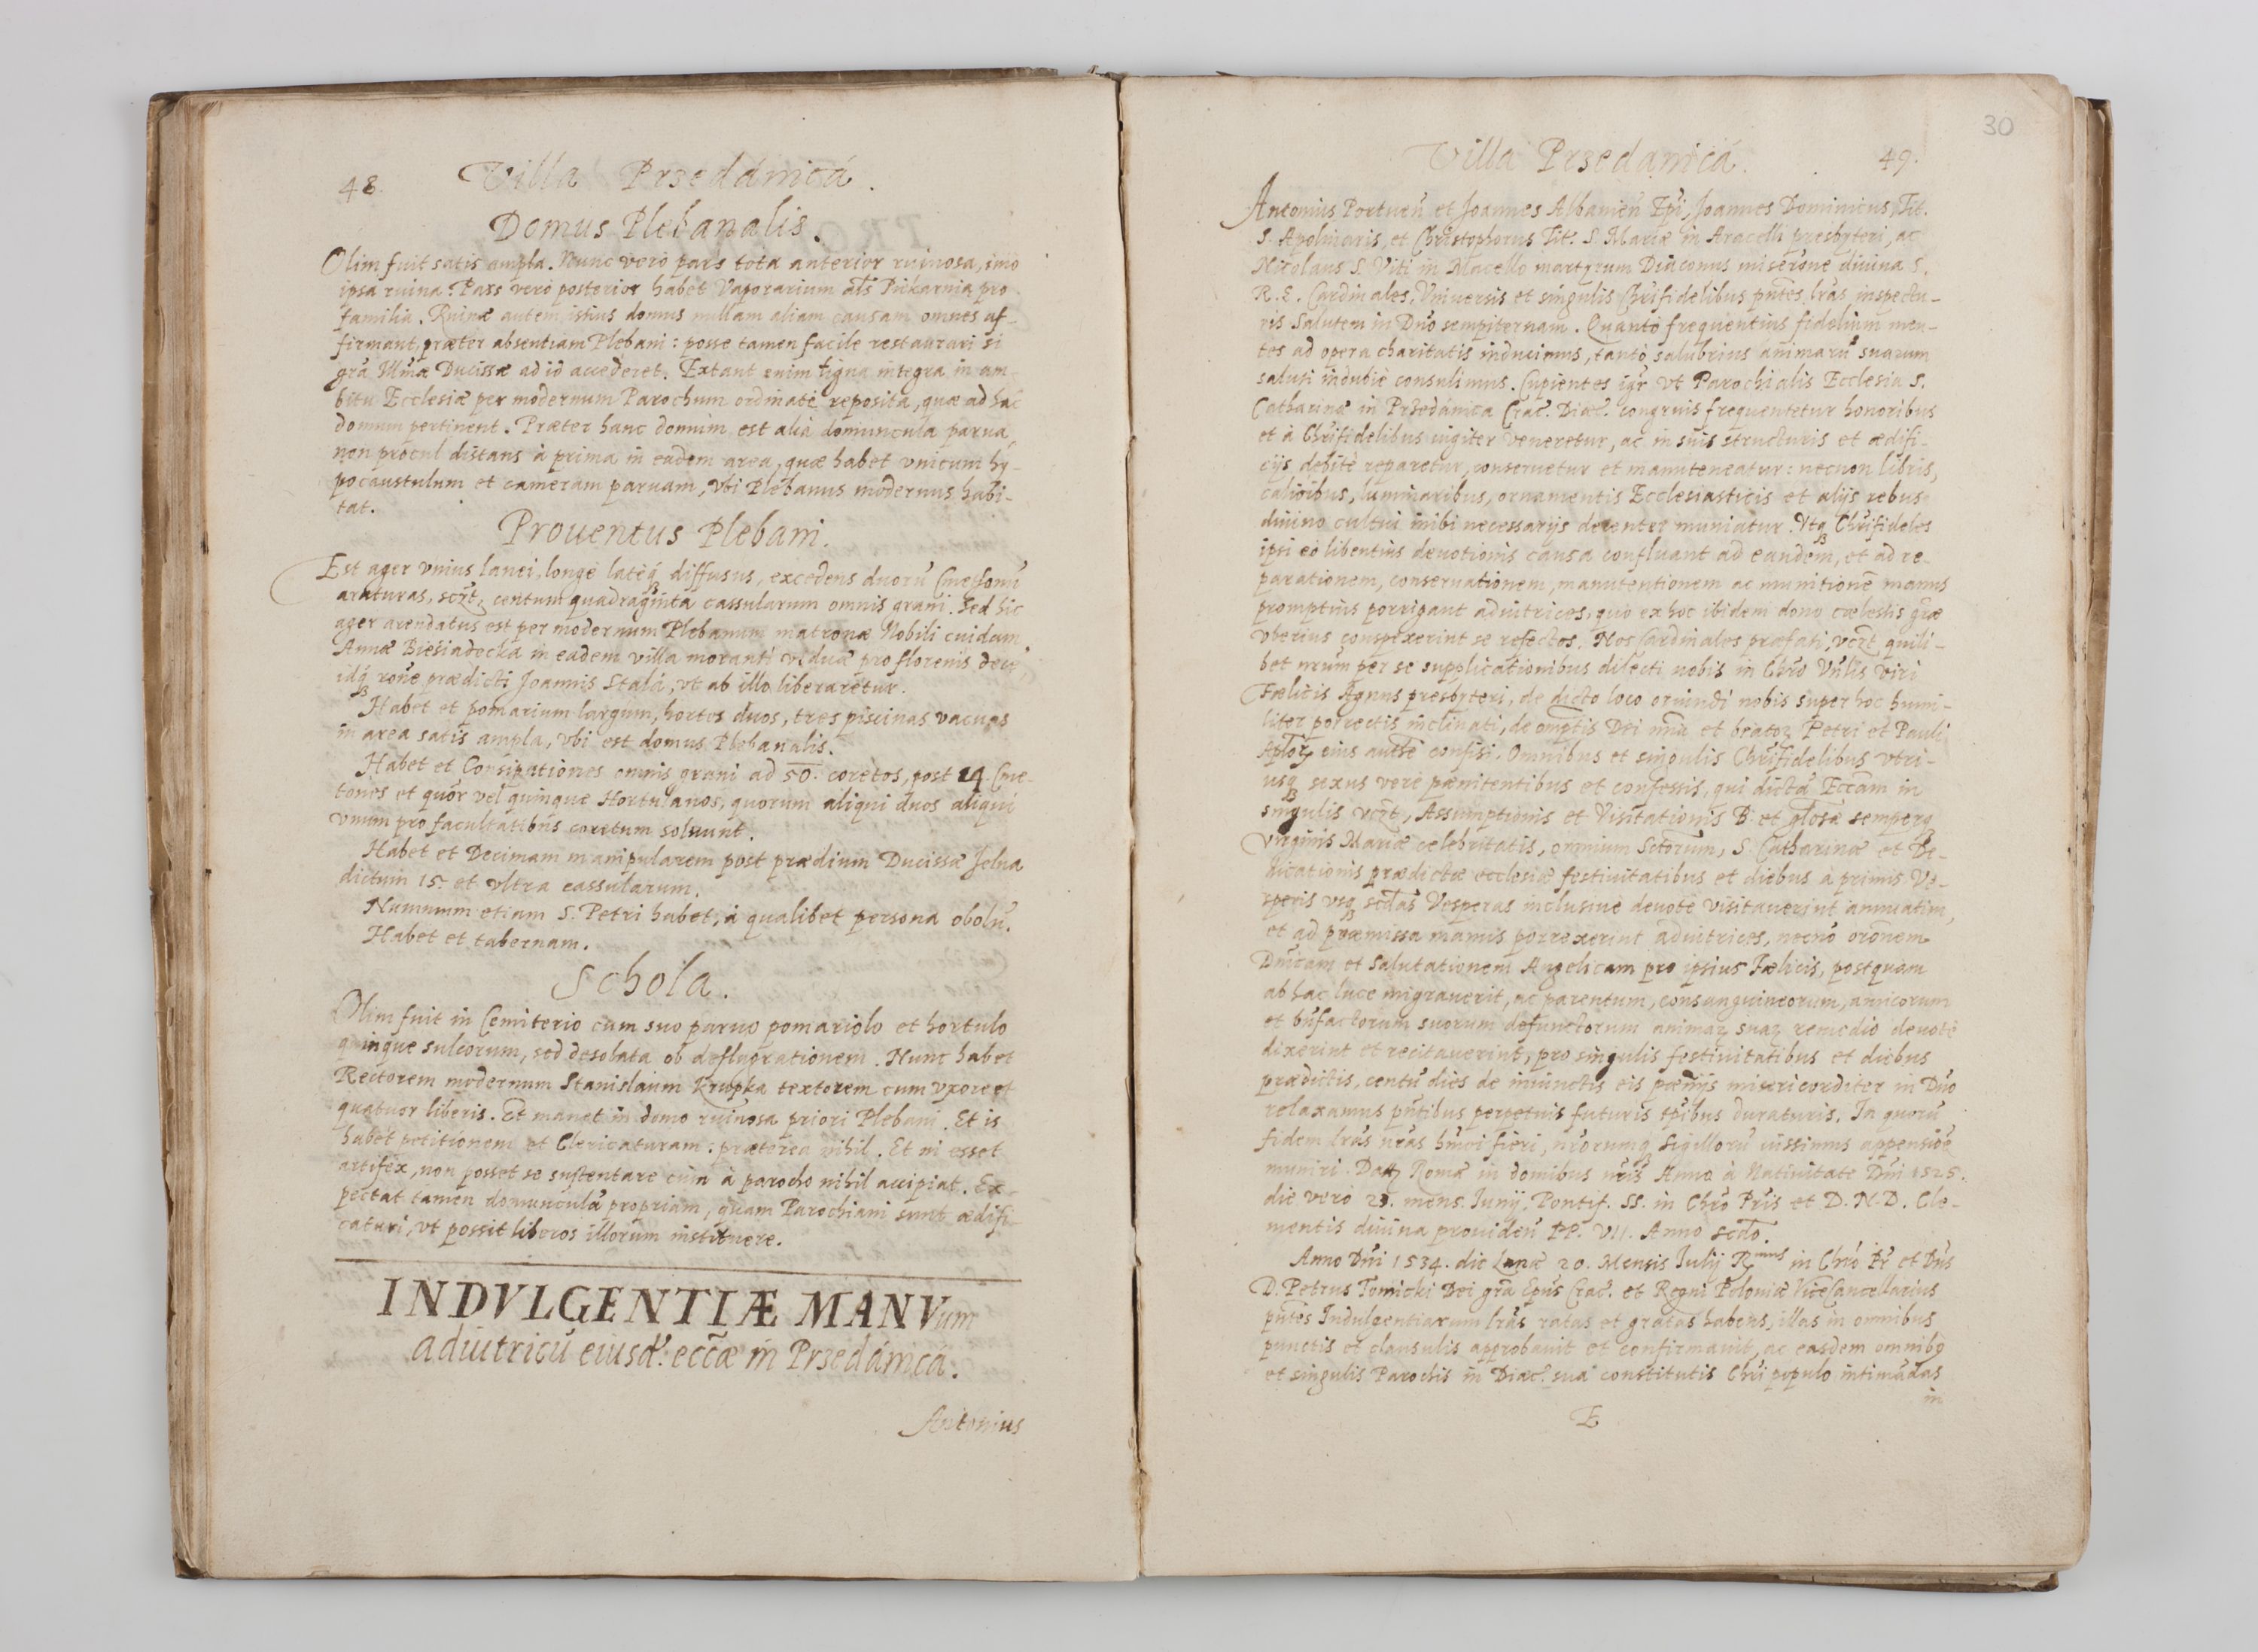 48. Villa Przedámicá.
Domus Plebanalis.
Olim fuit satis ampla. Nunc vero pars tota anterior ruinosa, imo
ipsa ruina. Pars verò posterior habet Vaporarium als Piekarnia pro
familia. Ruinæ autem istius domus nullam aliam causam omnes af-
firmant, præter absentiam Plebani: posse tamen facile restaurari si
gra Illmæ Ducissæ ad id accederet. Extant enim ligna integra in am-
bitu Ecclesiæ per modernum Parochum ordinatè reposita, quæ ad hac
domum pertinent. Præter hanc domum est alia domuncula parua,
non procul distans à prima in eadem area, quæ habet vnicum hy-
pocaustulum et cameram paruam, vbi Plebanus modernus habi-
tat.
Prouentus Plebani.
Est ager vnius lanei, longè latèq; diffusus, excedens duorū Cmetonū
araturas, sczt, centum quadraginta cassularum omnis grani. Sed hic
ager arendatus est per modernum Plebanum matronæ Nobili cuidam
Annæ Biesiadecká in eadem villa moranti viduæ pro florenis dece,
idq; rone prædicti Joannis Stalá, vt ab illo liberaretur.
Habet et pomarium largum, hortos duos, tres piscinas vacuas
in area satis ampla, vbi est domus Plebanalis.
Habet et Consipationes omnis grani ad 50. coretos, post 14. Cme-
tones et quor vel quinque Hortulanos, quorum aliqui duos aliqui
vnum pro facultatibus coretum soluunt.
Habet et Decimam manipularem post prædium Ducissæ Jelna
dictum 15. et vltra cassularum.
Nummum etiam S. Petri habet, à qualibet persona obolū.
Habet et tabernam.
Schola.
Olim fuit in Cemiterio cum suo paruo pomariolo et hortulo
quinque sulcorum, sed desolata ob deflagrationem. Nunc habet
Rectorem modernum Stanislaum Krupka textorem cum vxore et
quatuor liberis. Et manet in domo ruinosa priori Plebani. Et is
habet petitionem et Clericaturam: præterea nihil. Et ni esset
artifex, non posset se sustentare cum à parocho nihil accipiat. Ex-
pectat tamen domunculā propriam, quam Parochiani sunt ædifi-
caturi, vt possit liberos illorum instituere.
INDVLGENTIÆ MANVum
adiutricū eiusd. eccæ in Przedámicá.
Antonius
30
Villa Przedamicá. 49.
Antonius Portuen et Joannes Albanien Epi, Joannes Dominicus Tit.
S. Apolinaris, et Christophorus Tit. S. Mariæ in Aracelli presbyteri, ac
Nicolaus S. Viti in Macello martyrum Diaconus miserone diuina S.
R. E. Cardinales, Vniuersis et singulis Chrifidelibus pntes lras inspectu-
ris Salutem in Dno sempiternam. Quantò frequentius fidelium men-
tes ad opera charitatis inducimus, tantò salubrius animarū suarum
saluti indubiè consulimus. Cupientes igr vt Parochialis Ecclesia S.
Catharinæ in Przedámica Crac. Diæc. congruis frequentetur honoribus
et à Chrifidelibus iugiter veneretur, ac in suis structuris et ædifi-
cijs debitè reparetur, conseruetur et manuteneatur: necnon libris,
calicibus, luminaribus, ornamentis Ecclesiasticis et alijs rebus
diuino cultui inibi necessarijs decenter muniatur. Vtq; Chrifideles
ipsi eò libentius deuotionis causa confluant ad eandem, et ad re-
parationem, conseruationem, manutentionem ac munitionē manus
promptius porrigant adiutrices, quò ex hoc ibidem dono cælestis græ
vberius conspexerint se refectos. Nos Cardinales præfati, vczt quili-
bet nrum per se supplicationibus dilecti nobis in Chro Vnlis viri
Fælicis Agnus presbyteri, de dicto loco oriundi nobis super hoc humi-
liter porrectis inclinati, de omptis Dei mia et beator Petri et Pauli
Aplor eius autte confisi. Omnibus et singulis Chrifidelibus vtri-
usq; sexus verè pænitentibus et confessis, qui dictā Eccam in
singulis vczt, Assumptionis et Visitationis B. et glosæ semperq;
Virginis Mariæ celebritatis, omnium Sctorum, S. Catharinæ et De-
dicationis prædictæ ecclesiæ festiuitatibus et diebus a primis Ve-
speris vsq; scdas Vesperas inclusiuè deuotè visitauerint annuatim,
et ad præmissa manus porrexerint adiutrices, necnō oronem
Dnicam et Salutationem Angelicam pro ipsius Fælicis, postquam
ab hac luce migrauerit, ac parentum, consanguineorum, amicorum
et bnfactorum suorum defunctorum animar suar remedio deuotè
dixerint et recitauerint, pro singulis festiuitatibus et diebus
prædictis, centū dies de iniunctis eis pænijs misericorditer in Dno
relaxamus pntibus perpetuis futuris tpibus duraturis. In quorū
fidem lras nras hmoi fieri, nrorumq; Sigillorū iussimus appensiōe
muniri. Dat Romæ in domibus nris Anno à Natiuitate Dni 1525.
die verò 23. mens. Iunij, Pontif. SS. in Chro Pris et D. N. D. Cle-
mentis diuina prouiden PP. VII. Anno scdo.
Anno Dni 1534. die Lunæ 20. Mensis Iulij Rmus in Chro Pr et Dns
D. Petrus Tomicki Dei gra Epus Crac. et Regni Poloniæ ViceCancellarius
pntes Indulgentiarum lras ratas et gratas habens, illas in omnibus
punctis et clausulis approbauit et confirmauit, ac easdem omnibq
et singulis Parochis in Diæc. sua constitutis Chri populo intimādas
in
E